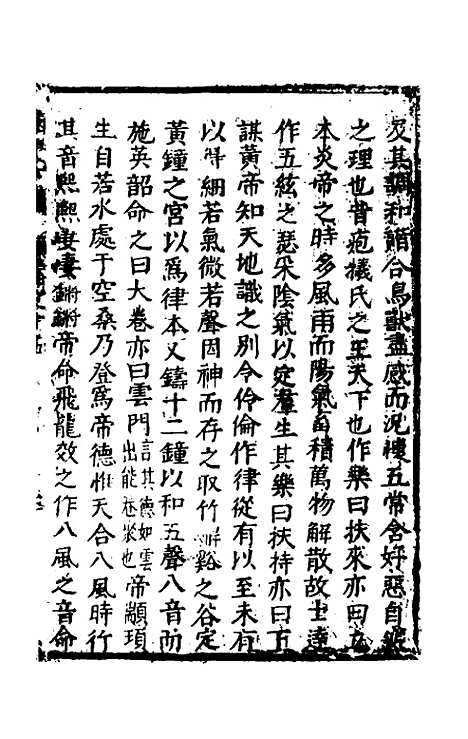 及其調和諧合鳥獸盡感而況懷五常含好惡自然
之理也昔疱犧氏之王天下也作樂曰扶來亦曰立
本炎帝之時多風雨而陽氣畜積萬物解散故士達
作五絃之瑟采陰氣以定羣生其樂曰扶持亦曰下
謀黃帝知天地識之別令伶倫作律從有以至未有
以得細若氣微若聲因神而存之取竹嶰谿之谷定
黃鐘之宮以爲律本又鑄十二鐘以和五聲八音而
施英韶命之曰大卷亦曰雲門言其德如雲出能卷聚也帝顓頊
生自若水處于空桑乃登爲帝德惟天合八風時行
其音熙熙凄凄鏘鏘帝命飛龍效之作八風之音命